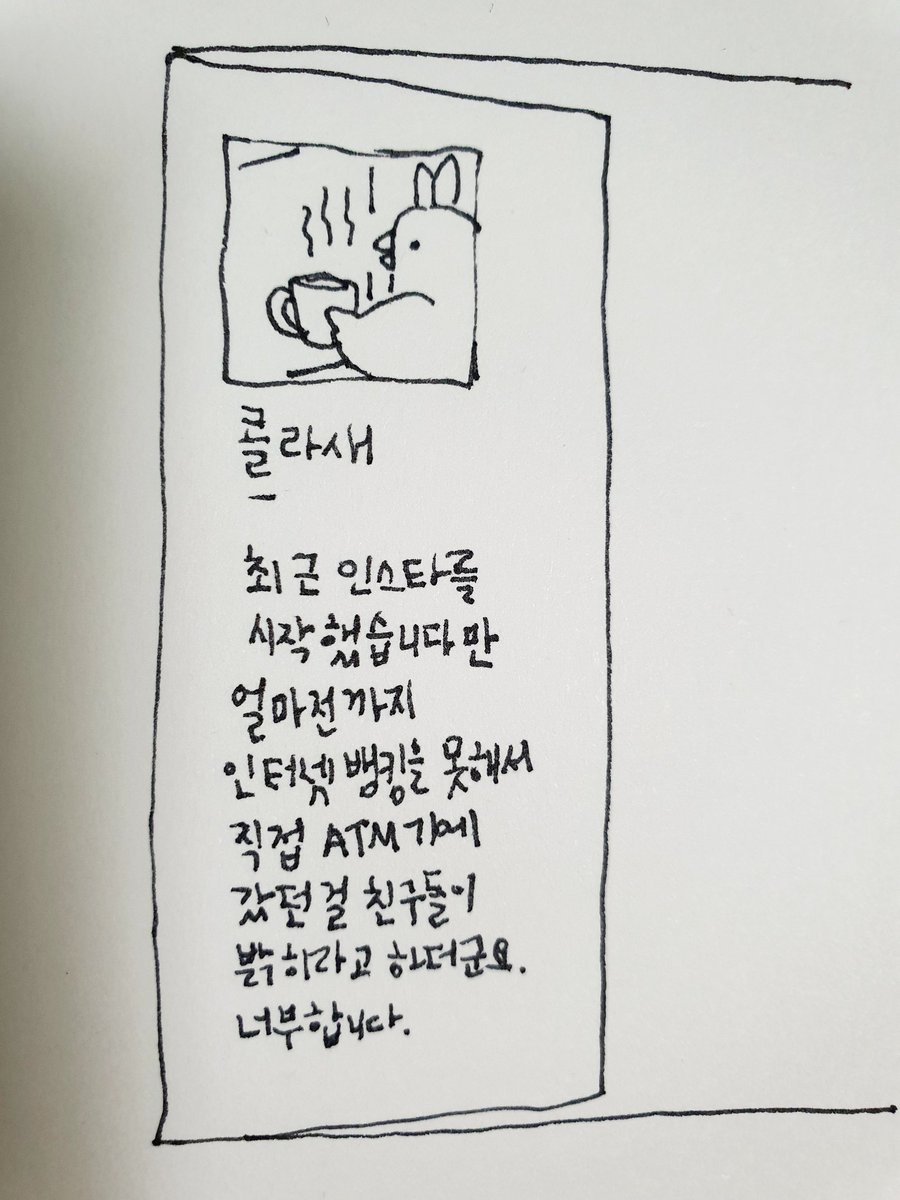 콜라새
최근 인스타를
시작했습니다만
얼마전까지
인터넷 뱅킹을 못해서
직접 ATM기에
갔던 걸 친구들이
밝히라고 하더군요.
너부합니다.